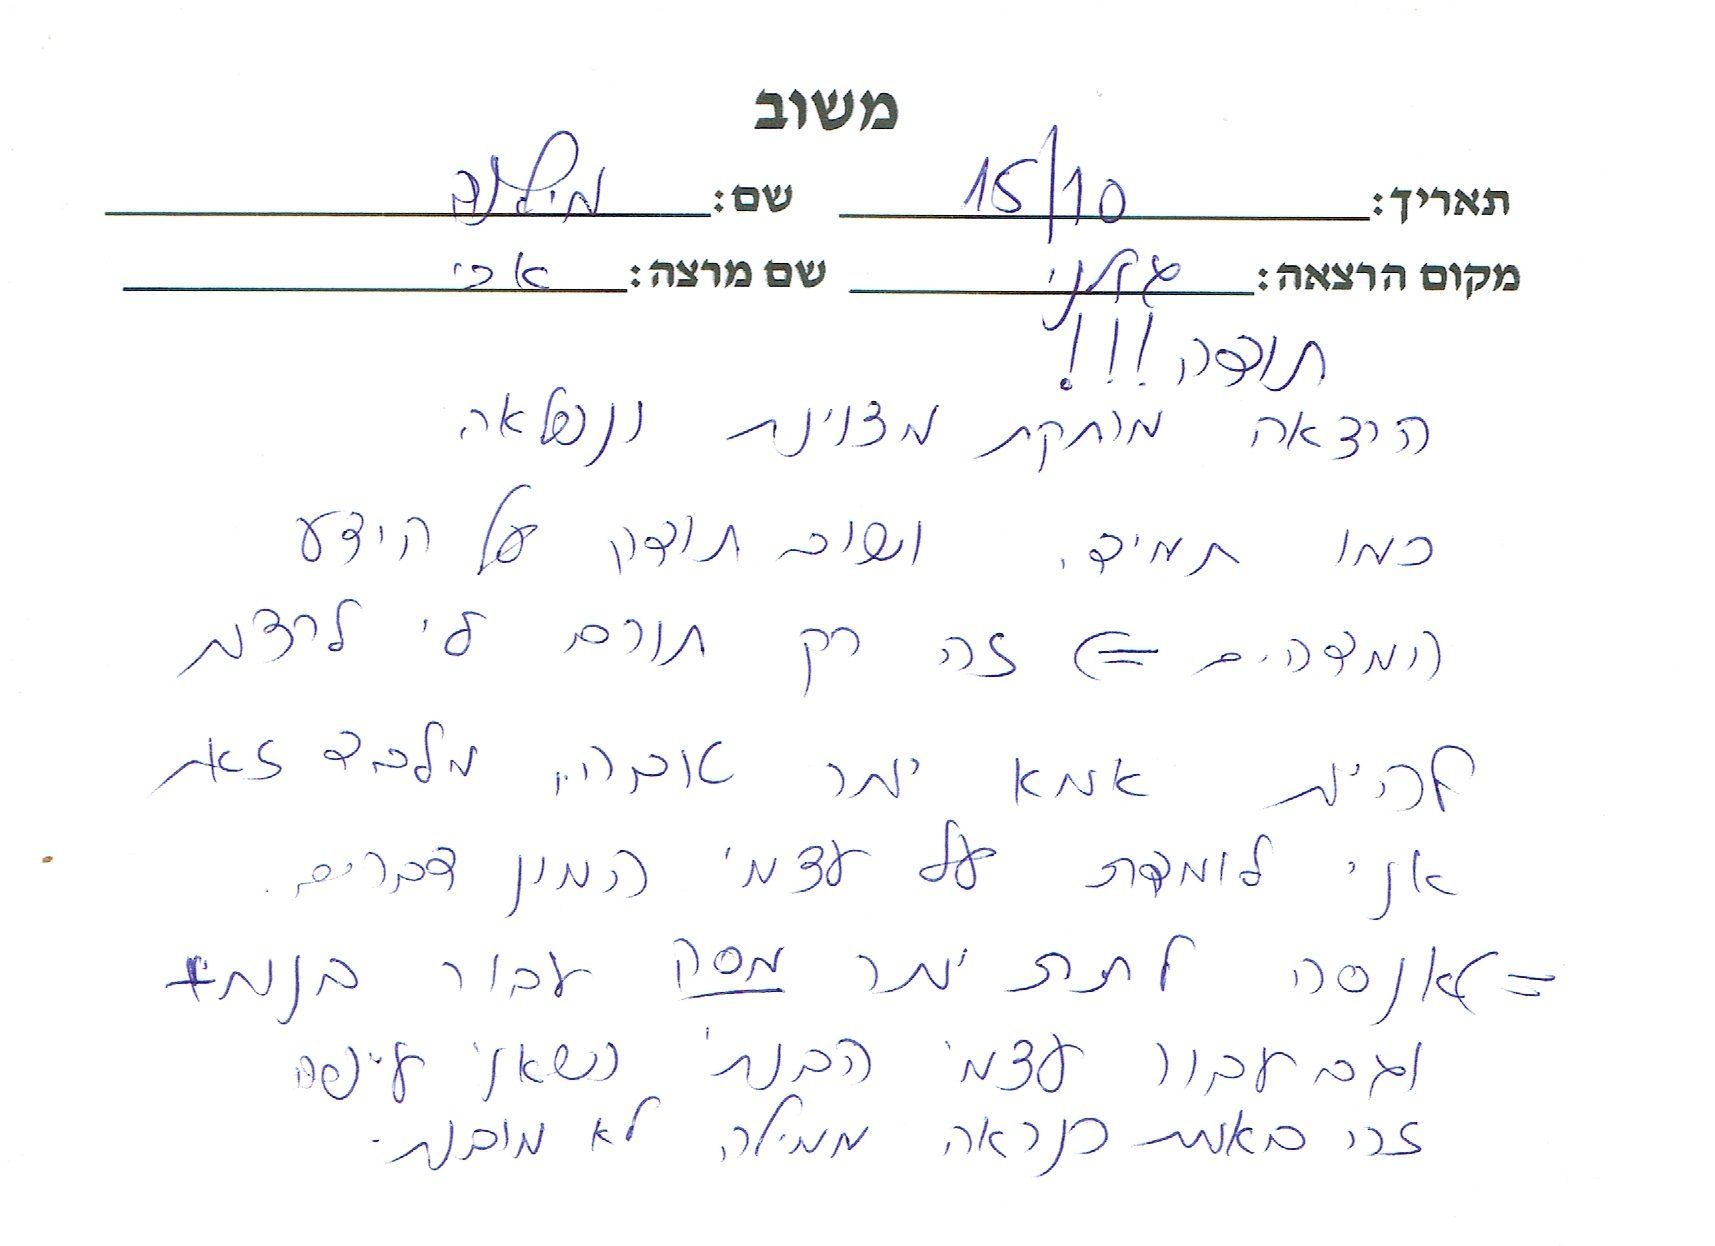 משוב
תאריך: 15/10 שם: מילנה
מקום הרצאה: גולני שם מרצה: אבי
תודה !!!
הרצאה מרתקת מצוינת ונפלאה
כמו תמיד. ושוב תודה על הידע
המדהים => זה רק תורם לי לרצות
להיות אמא יותר טובה. מלבד זאת
אני לומדת על עצמי המון דברים.
=> אנסה לתת יותר עבור בנותי
וגם עבור עצמי הבנתי כשאני עייפה
זה באמת כנראה ממילה לא מובנת.